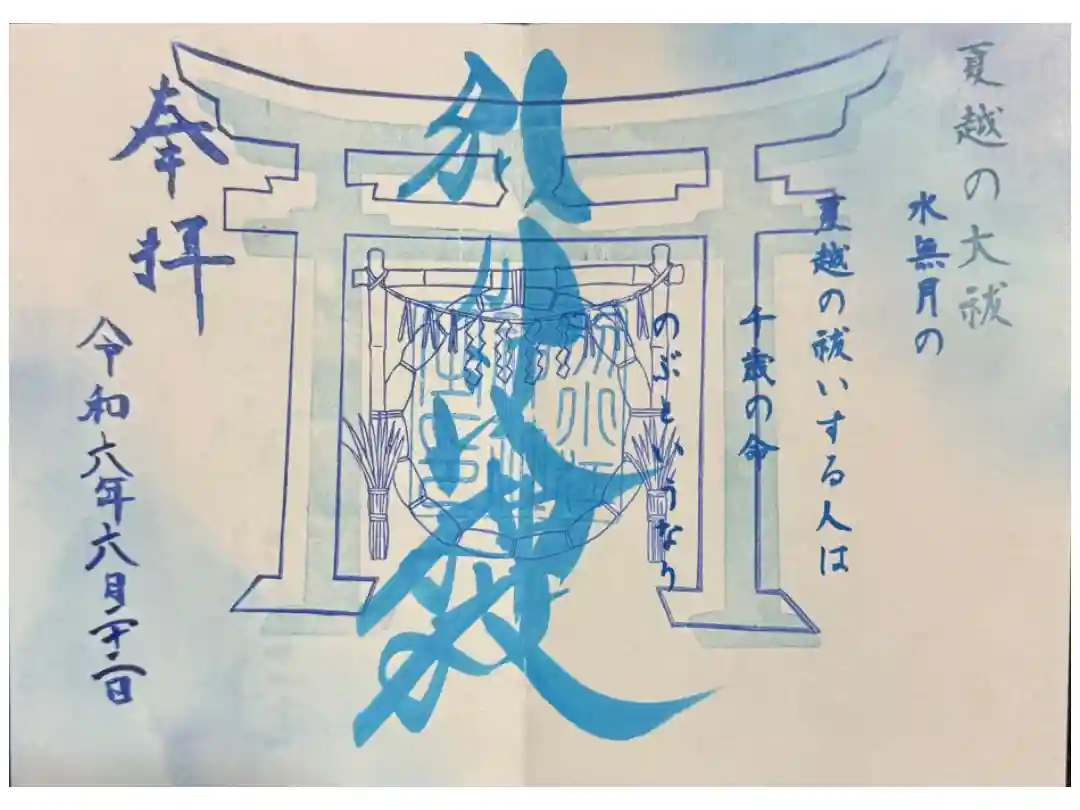 夏越の大祓
水無月の
夏越の祓いする人は
千歳の命
のぶというなり
別小江神社
奉拝
令和六年六月二十二日